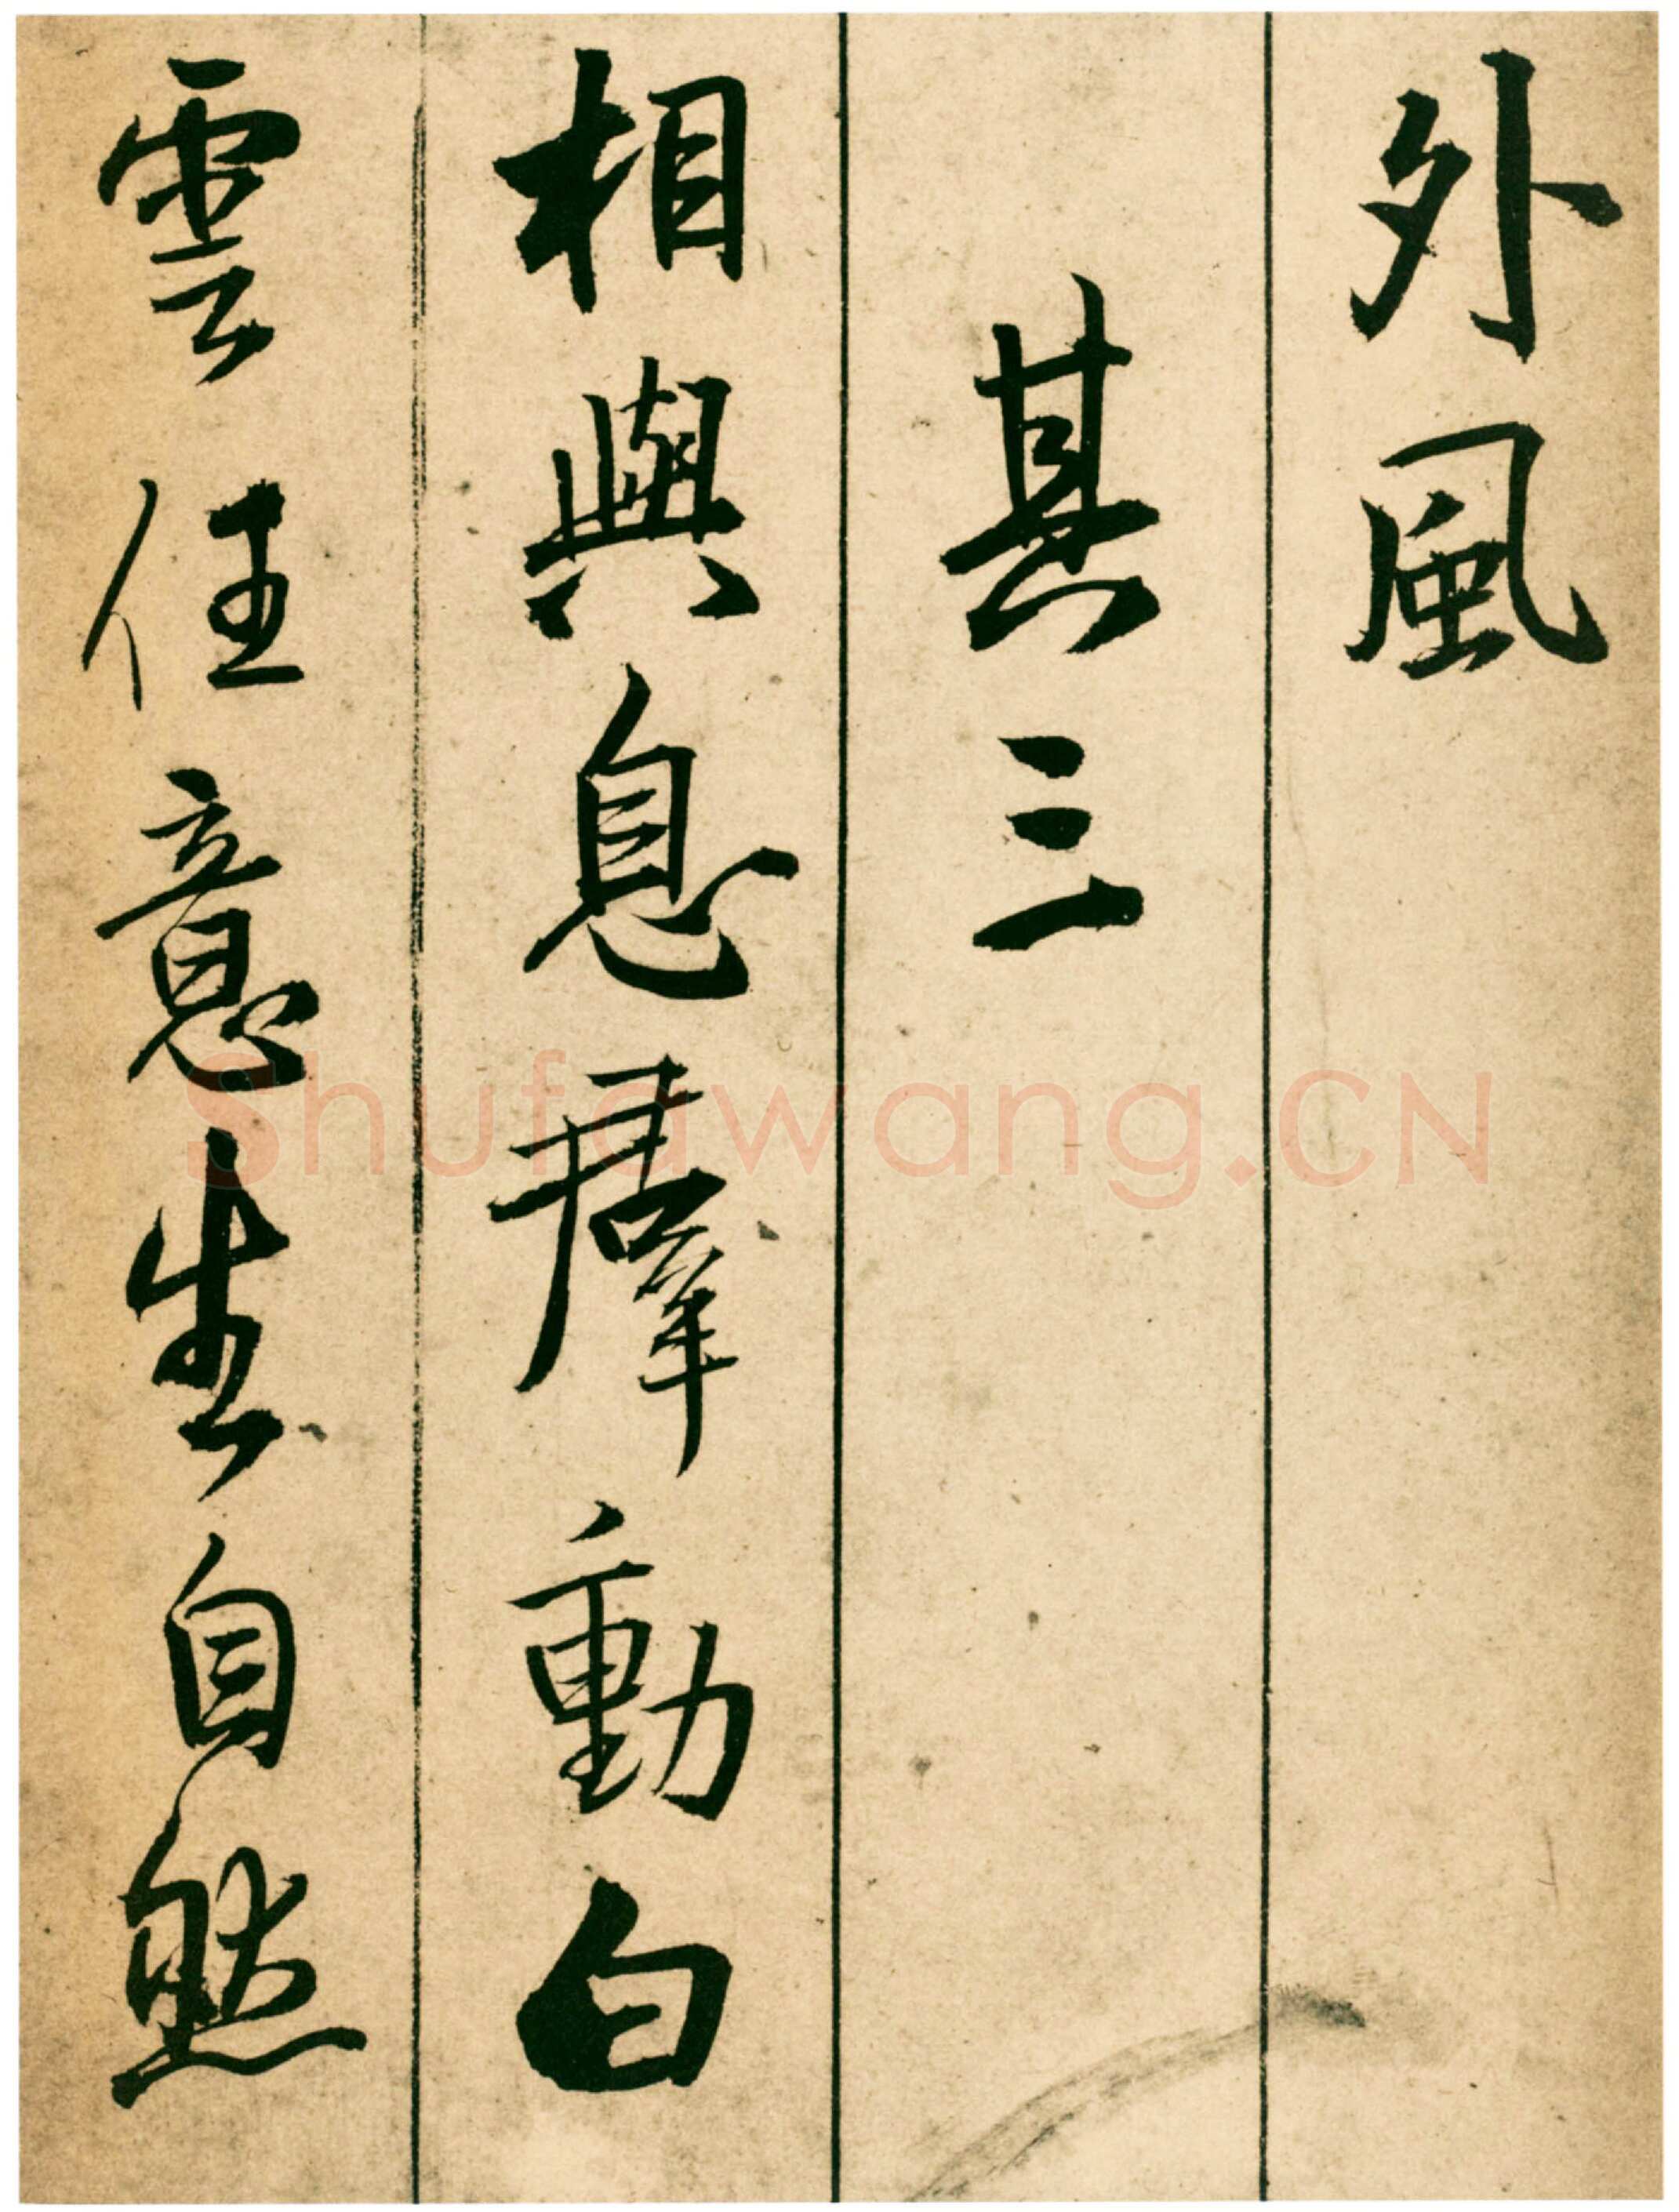 外風
其三
相與息羣動白
雲任意生自然
Shufawang.CN